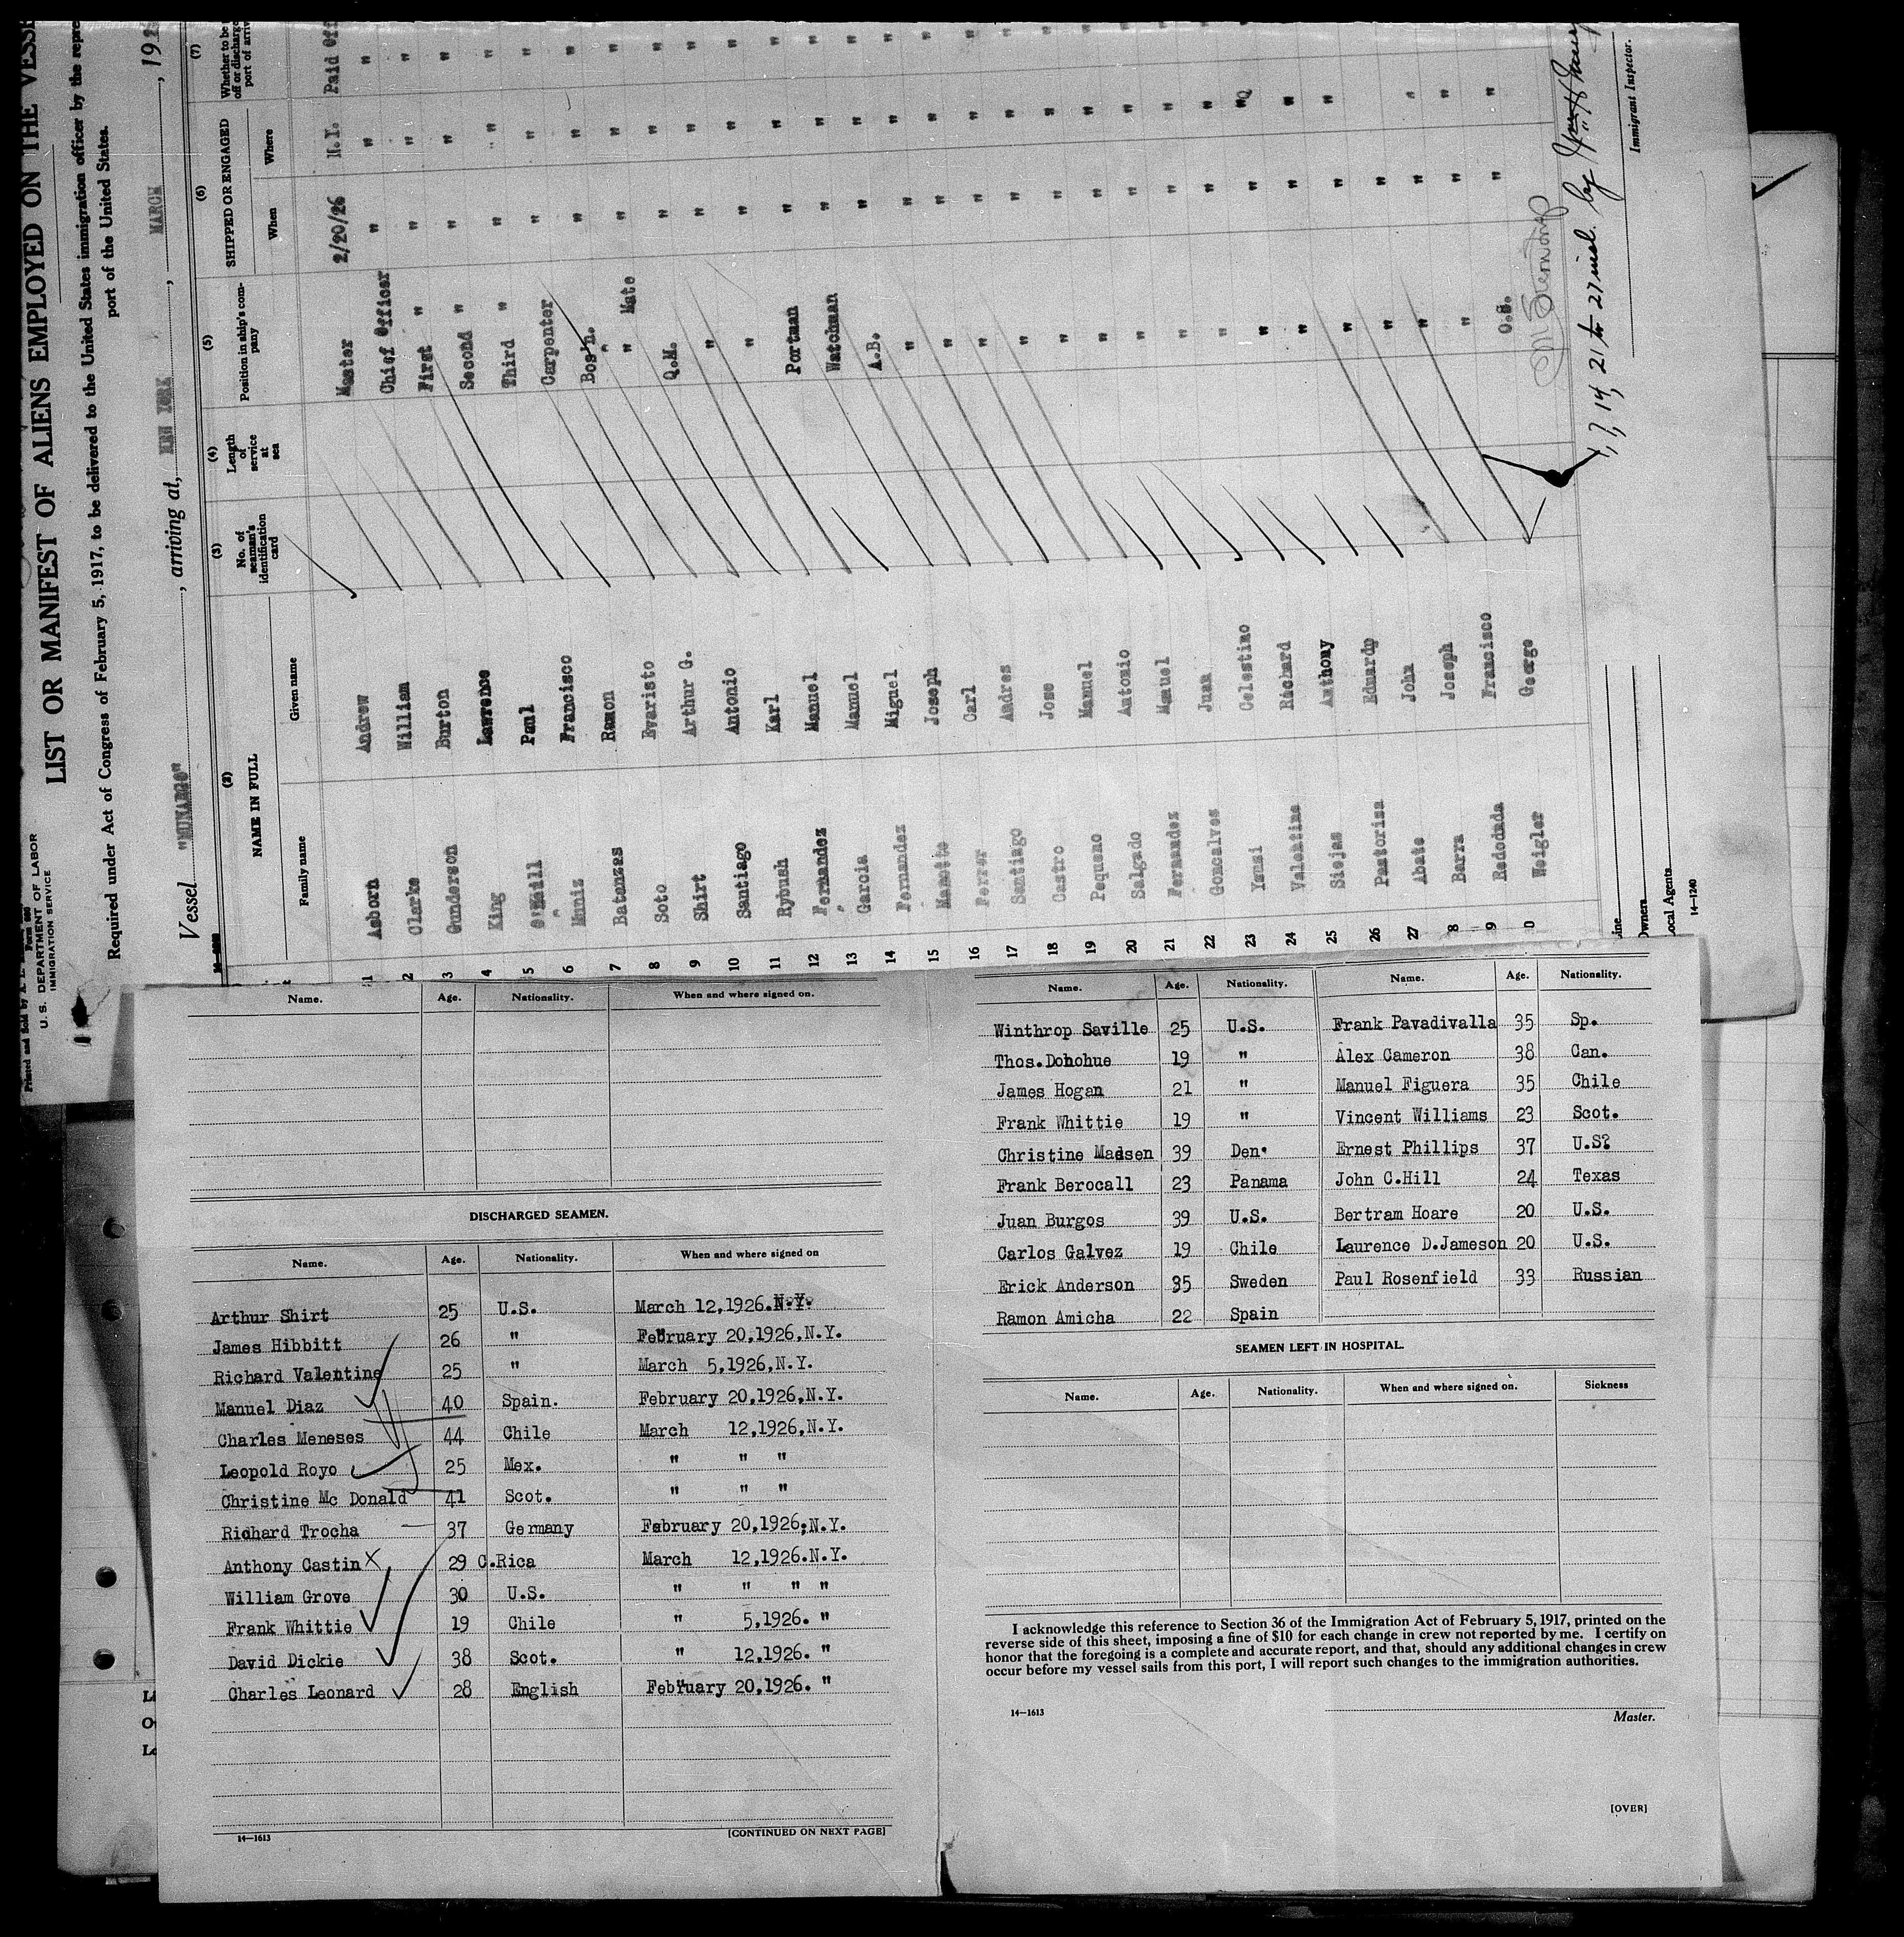 LIST OR MANIFEST OF ALIENS EMPLOYED ON THE VESS
Required under Act of Congress of February 5, 1917, to be delivered to the United States immigration officer by the repre
port of the United States.
U. S. DEPARTMENT OF LABOR
IMMIGRATION SERVICE
Vessel "MUNARGO", arriving at, NEW YORK, MARCH, 19
(2) (3) (4) (5) (6) (7)
NAME IN FULL No. of seaman's identification card Length of service at sea Position in ship's company SHIPPED OR ENGAGED Whether to be
Family name Given name When Where
1 Asborn Andrew Master 2/20/26 N.Y. Paid Off
2 Clarke William Chief Officer " " "
3 Gunderson Burton First " " " "
4 King Lawrence Second " " " "
5 O'Neill Paul Third " " " "
6 Muniz Francisco Carpenter " " "
7 Batanzas Ramon Bos'n. " " "
8 Soto Evaristo " Mate " " "
9 Shirt Arthur G. Q.M. " " "
10 Santiago Antonio " " " "
11 Rybush Karl " " " "
12 Fernandez Manuel Portman " " "
13 Garcia Manuel Watchman " " "
14 Fernandez Miguel A.B. " " "
15 Mamotto Joseph " " " "
16 Ferrer Carl " " " "
17 Santiago Andres " " " "
18 Castro Jose " " " "
19 Pequeno Manuel " " " "
20 Salgado Antonio " " " "
21 Fernandez Manuel " " " "
22 Goncalves Juan " " " "
23 Celestino " " "
24 Valentine Richard " " "
25 Siejas Anthony " " "
26 Pastoriza Eduardo " "
27 Abate John " " "
8 Barra Joseph " " "
9 Redodada Francisco " "
0 Weigler George O.S.
1, 7, 14, 21 to 27 incl. by
Immigrant Inspector.
Owners
Local Agents
14—1240
Name. Age. Nationality. When and where signed on.
DISCHARGED SEAMEN.
Name. Age. Nationality. When and where signed on
Arthur Shirt 25 U.S. March 12,1926.N.Y.
James Hibbitt 26 " February 20,1926,N.Y.
Richard Valentine 25 " March 5,1926,N.Y.
Manuel Diaz 40 Spain. February 20,1926,N.Y.
Charles Meneses 44 Chile March 12,1926,N.Y.
Leopold Royo 25 Mex. " " "
Christine Mc Donald 41 Scot. " " "
Richard Trocha 37 Germany February 20,1926,N.Y.
Anthony Castin X 29 C.Rica March 12,1926.N.Y.
William Grove 30 U.S. " " " "
Frank Whittie 19 Chile " 5,1926. "
David Dickie 38 Scot. " 12,1926. "
Charles Leonard 28 English February 20,1926. "
14—1613
[CONTINUED ON NEXT PAGE]
Name. Age. Nationality. Name. Age. Nationality.
Winthrop Saville 25 U.S. Frank Pavadivalla 35 Sp.
Thos.Donohue 19 " Alex Cameron 38 Can.
James Hogan 21 " Manuel Figuera 35 Chile
Frank Whittie 19 " Vincent Williams 23 Scot.
Christine Madsen 39 Den. Ernest Phillips 37 U.S?
Frank Berocall 23 Panama John C.Hill 24 Texas
Juan Burgos 39 U.S. Bertram Hoare 20 U.S.
Carlos Galvez 19 Chile Laurence D.Jameson 20 U.S.
Erick Anderson 35 Sweden Paul Rosenfield 33 Russian
Ramon Amicha 22 Spain
SEAMEN LEFT IN HOSPITAL.
Name. Age. Nationality. When and where signed on. Sickness
I acknowledge this reference to Section 36 of the Immigration Act of February 5, 1917, printed on the
reverse side of this sheet, imposing a fine of $10 for each change in crew not reported by me. I certify on
honor that the foregoing is a complete and accurate report, and that, should any additional changes in crew
occur before my vessel sails from this port, I will report such changes to the immigration authorities.
14—1613
Master.
[OVER]